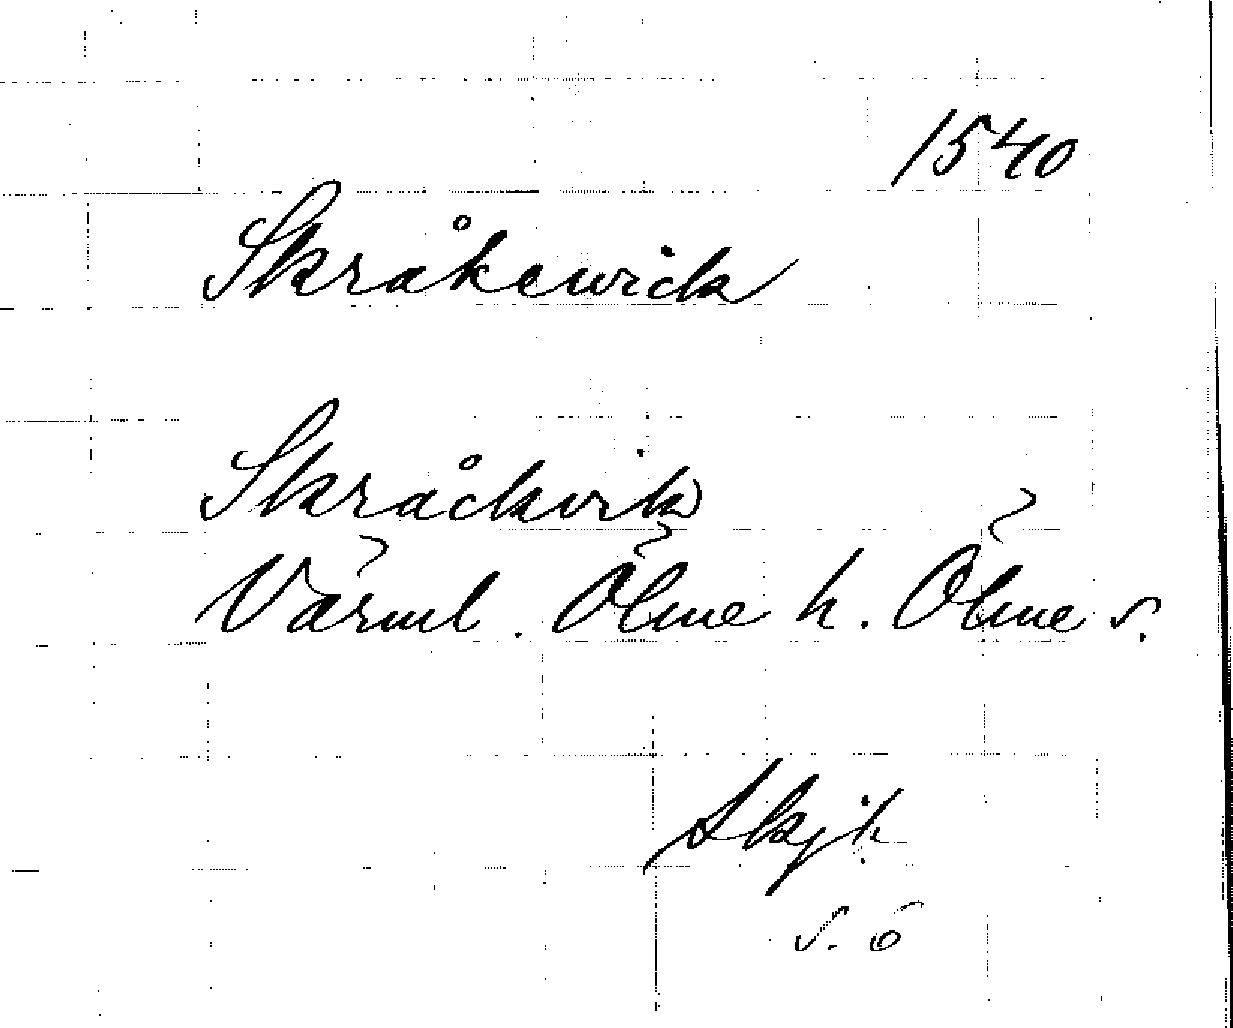 1540
Skråkewick
Skråckvik
Värml. Ölme h. Ölme s.
Skjb.
s. 6